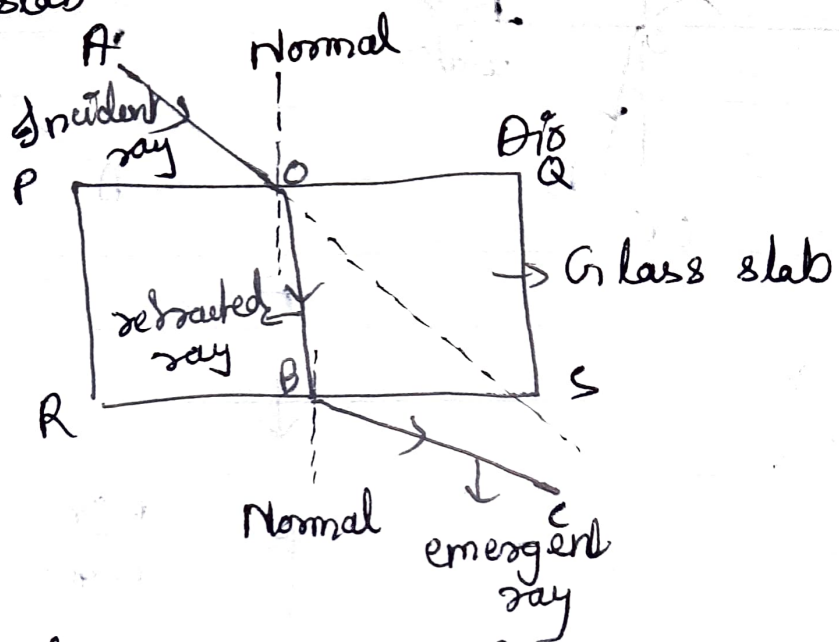 A
Normal
Incident
ray
Air
P
O
Q
Glass slab
refracted
ray
B
S
R
Normal
C
emergent
ray